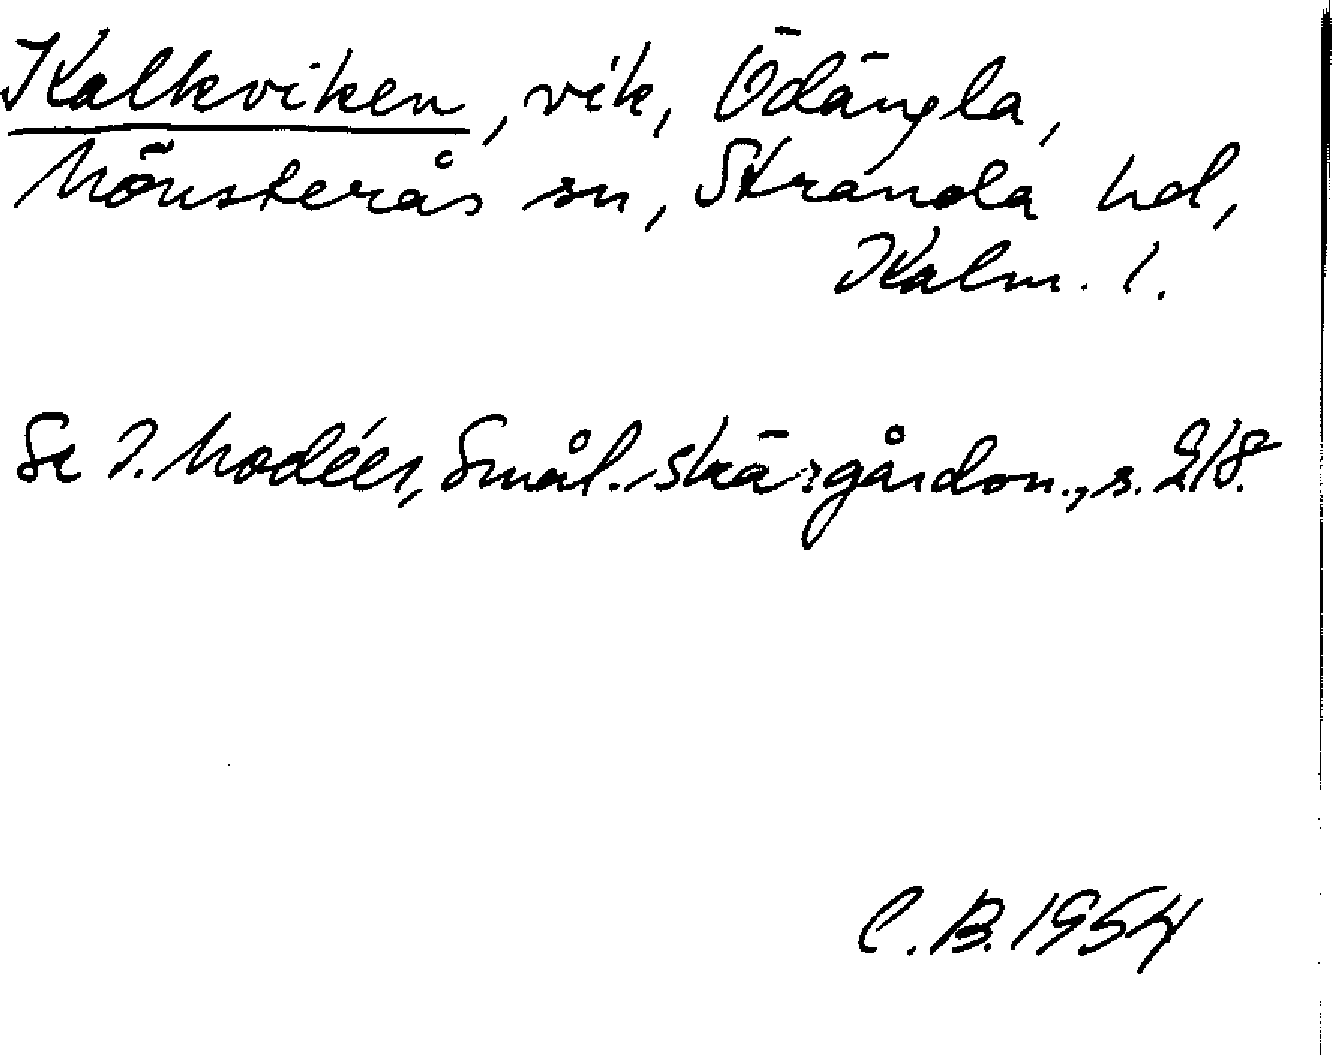 Kalkviken, vik, Ödängla,
Mönsterås sn, Stranda hd,
Kalm. l.
Se I. Modéer, Smål. skärgårdsn., s. 218.
C. B. 1954